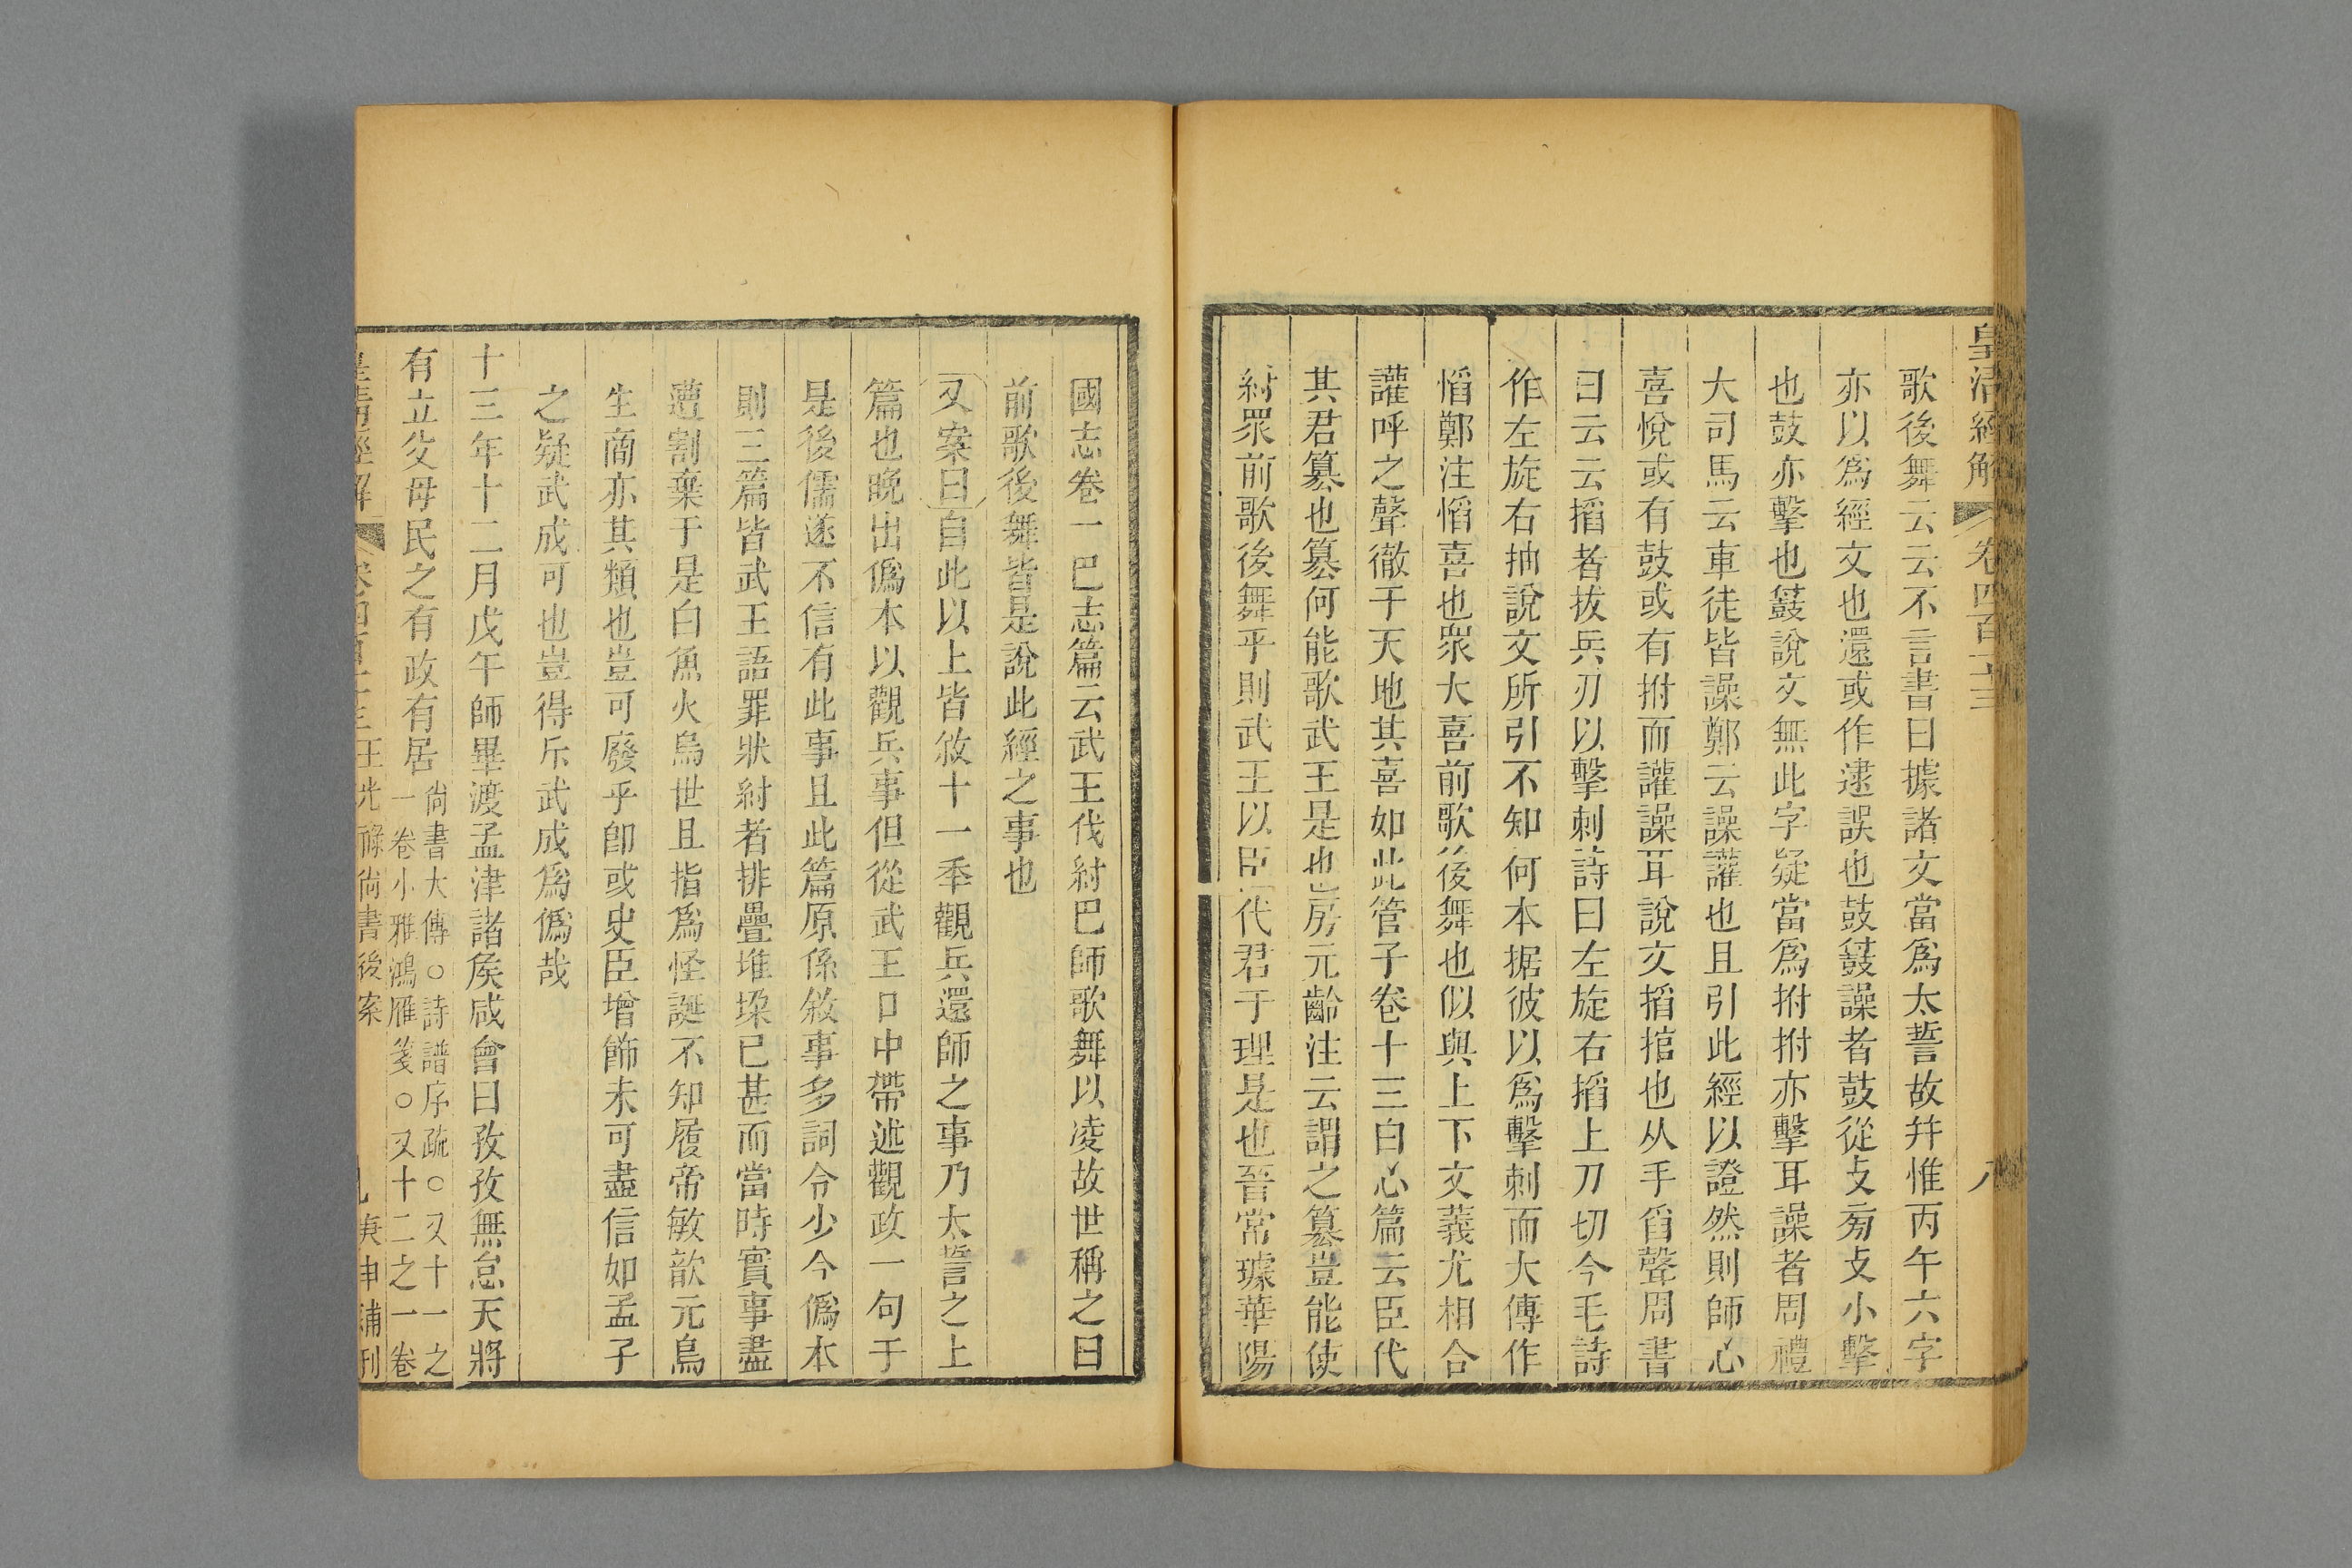 皇淸經解 卷四百十三 八
歌後舞云云不言書曰據諸文當爲太誓故幷惟丙午六字
亦以爲經文也還或作逮誤也鼓鼛譟者鼓從攴㫄攴小擊
也鼓亦擊也鼛說文無此字疑當爲拊拊亦擊耳譟者周禮
大司馬云車徒皆譟鄭云譟讙也且引此經以證然則師心
喜悅或有鼓或有拊而讙譟耳說文搯捾也从手舀聲周書
曰云云搯者拔兵刃以擊刺詩曰左旋右搯上刀切今毛詩
作左旋右抽說文所引不知何本据彼以爲擊刺而大傳作
慆鄭注慆喜也眾大喜前歌後舞也似與上下文義尤相合
讙呼之聲徹于天地其喜如此管子卷十三白心篇云臣代
其君篡也篡何能歌武王是也房元齡注云謂之篡豈能使
紂眾前歌後舞乎則武王以臣代君于理是也晉常璩華陽
國志卷一巴志篇云武王伐紂巴師歌舞以凌故世稱之曰
前歌後舞皆是說此經之事也
又案曰自此以上皆敘十一年觀兵還師之事乃太誓之上
篇也晚出僞本以觀兵事但從武王口中帶述觀政一句于
是後儒遂不信有此事且此篇原係敘事多詞令少今僞本
則三篇皆武王語罪狀紂者排疊堆垜已甚而當時實事盡
遭割棄于是白魚火烏世且指爲怪誕不知履帝敏歆元鳥
生商亦其類也豈可廢乎卽或史臣增飾未可盡信如孟子
之疑武成可也豈得斥武成爲僞哉
十三年十二月戊午師畢渡孟津諸矦咸會曰孜孜無怠天將
有立父母民之有政有居 尙書大傳○詩譜序疏○又十一之
一卷小雅鴻雁箋○又十二之一卷
皇淸經解 卷四百十三 王光祿尙書後案 九 庚申補刊